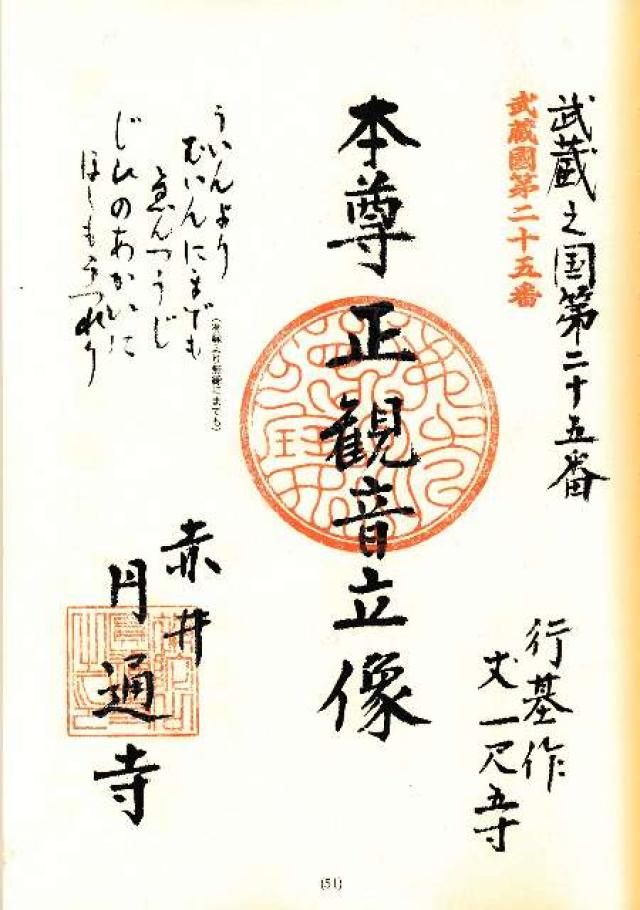 武蔵之国第二十五番
武蔵國第二十五番
行基作
丈一尺五寸
本尊正観音立像
ういんより
むいんにまでも
ゑんつうじ
じひのあかいに
ほしもうつれり
赤井
円通寺
(51)